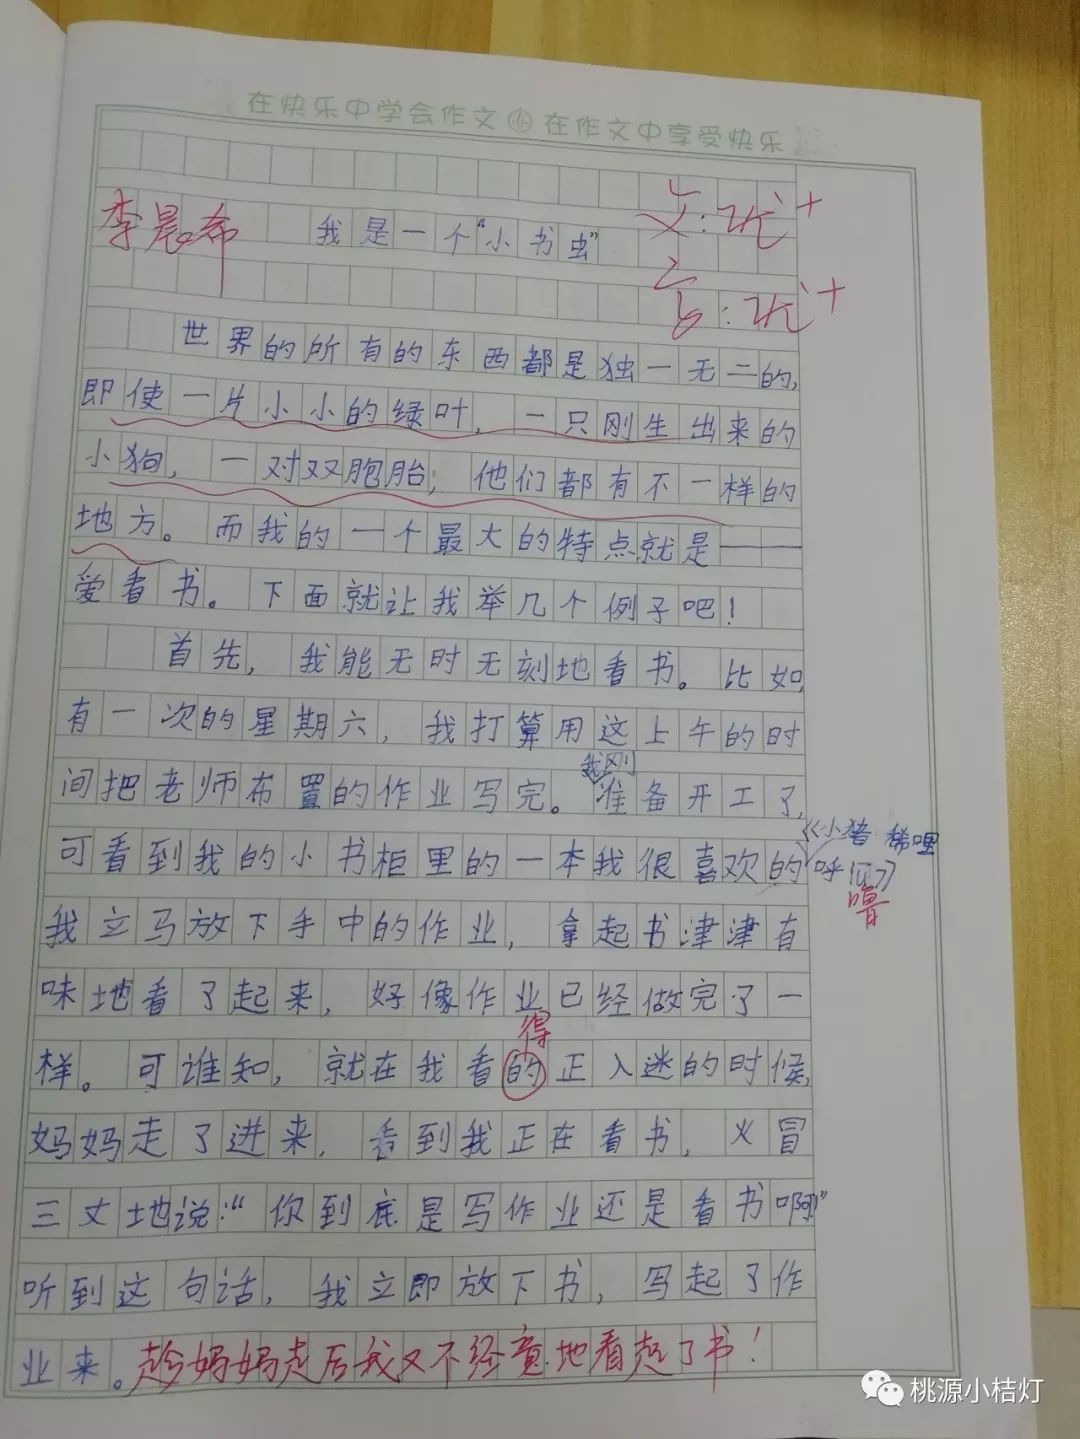 在快乐中学会作文 在作文中享受快乐
李晨希 我是一个“小书虫” 文:优+
言:优+
世界的所有的东西都是独一无二的,
即使一片小小的绿叶,一只刚生出来的
小狗,一对双胞胎;他们都有不一样的
地方。而我的一个最大的特点就是——
爱看书。下面就让我举几个例子吧!
首先,我能无时无刻地看书。比如,
有一次的星期六,我打算用这上午的时
我刚
间把老师布置的作业写完。准备开工了,
《小猪稀哩
可看到我的小书柜里的一本我很喜欢的呼
噜
我立马放下手中的作业,拿起书津津有
味地看了起来,好像作业已经做完了一
得
样。可谁知,就在我看的正入迷的时候,
妈妈走了进来,看到我正在看书,火冒
三丈地说:“你到底是写作业还是看书啊!”
听到这句话,我立即放下书,写起了作
业来。趁妈妈走后我又不经意地看起了书!
桃源小桔灯